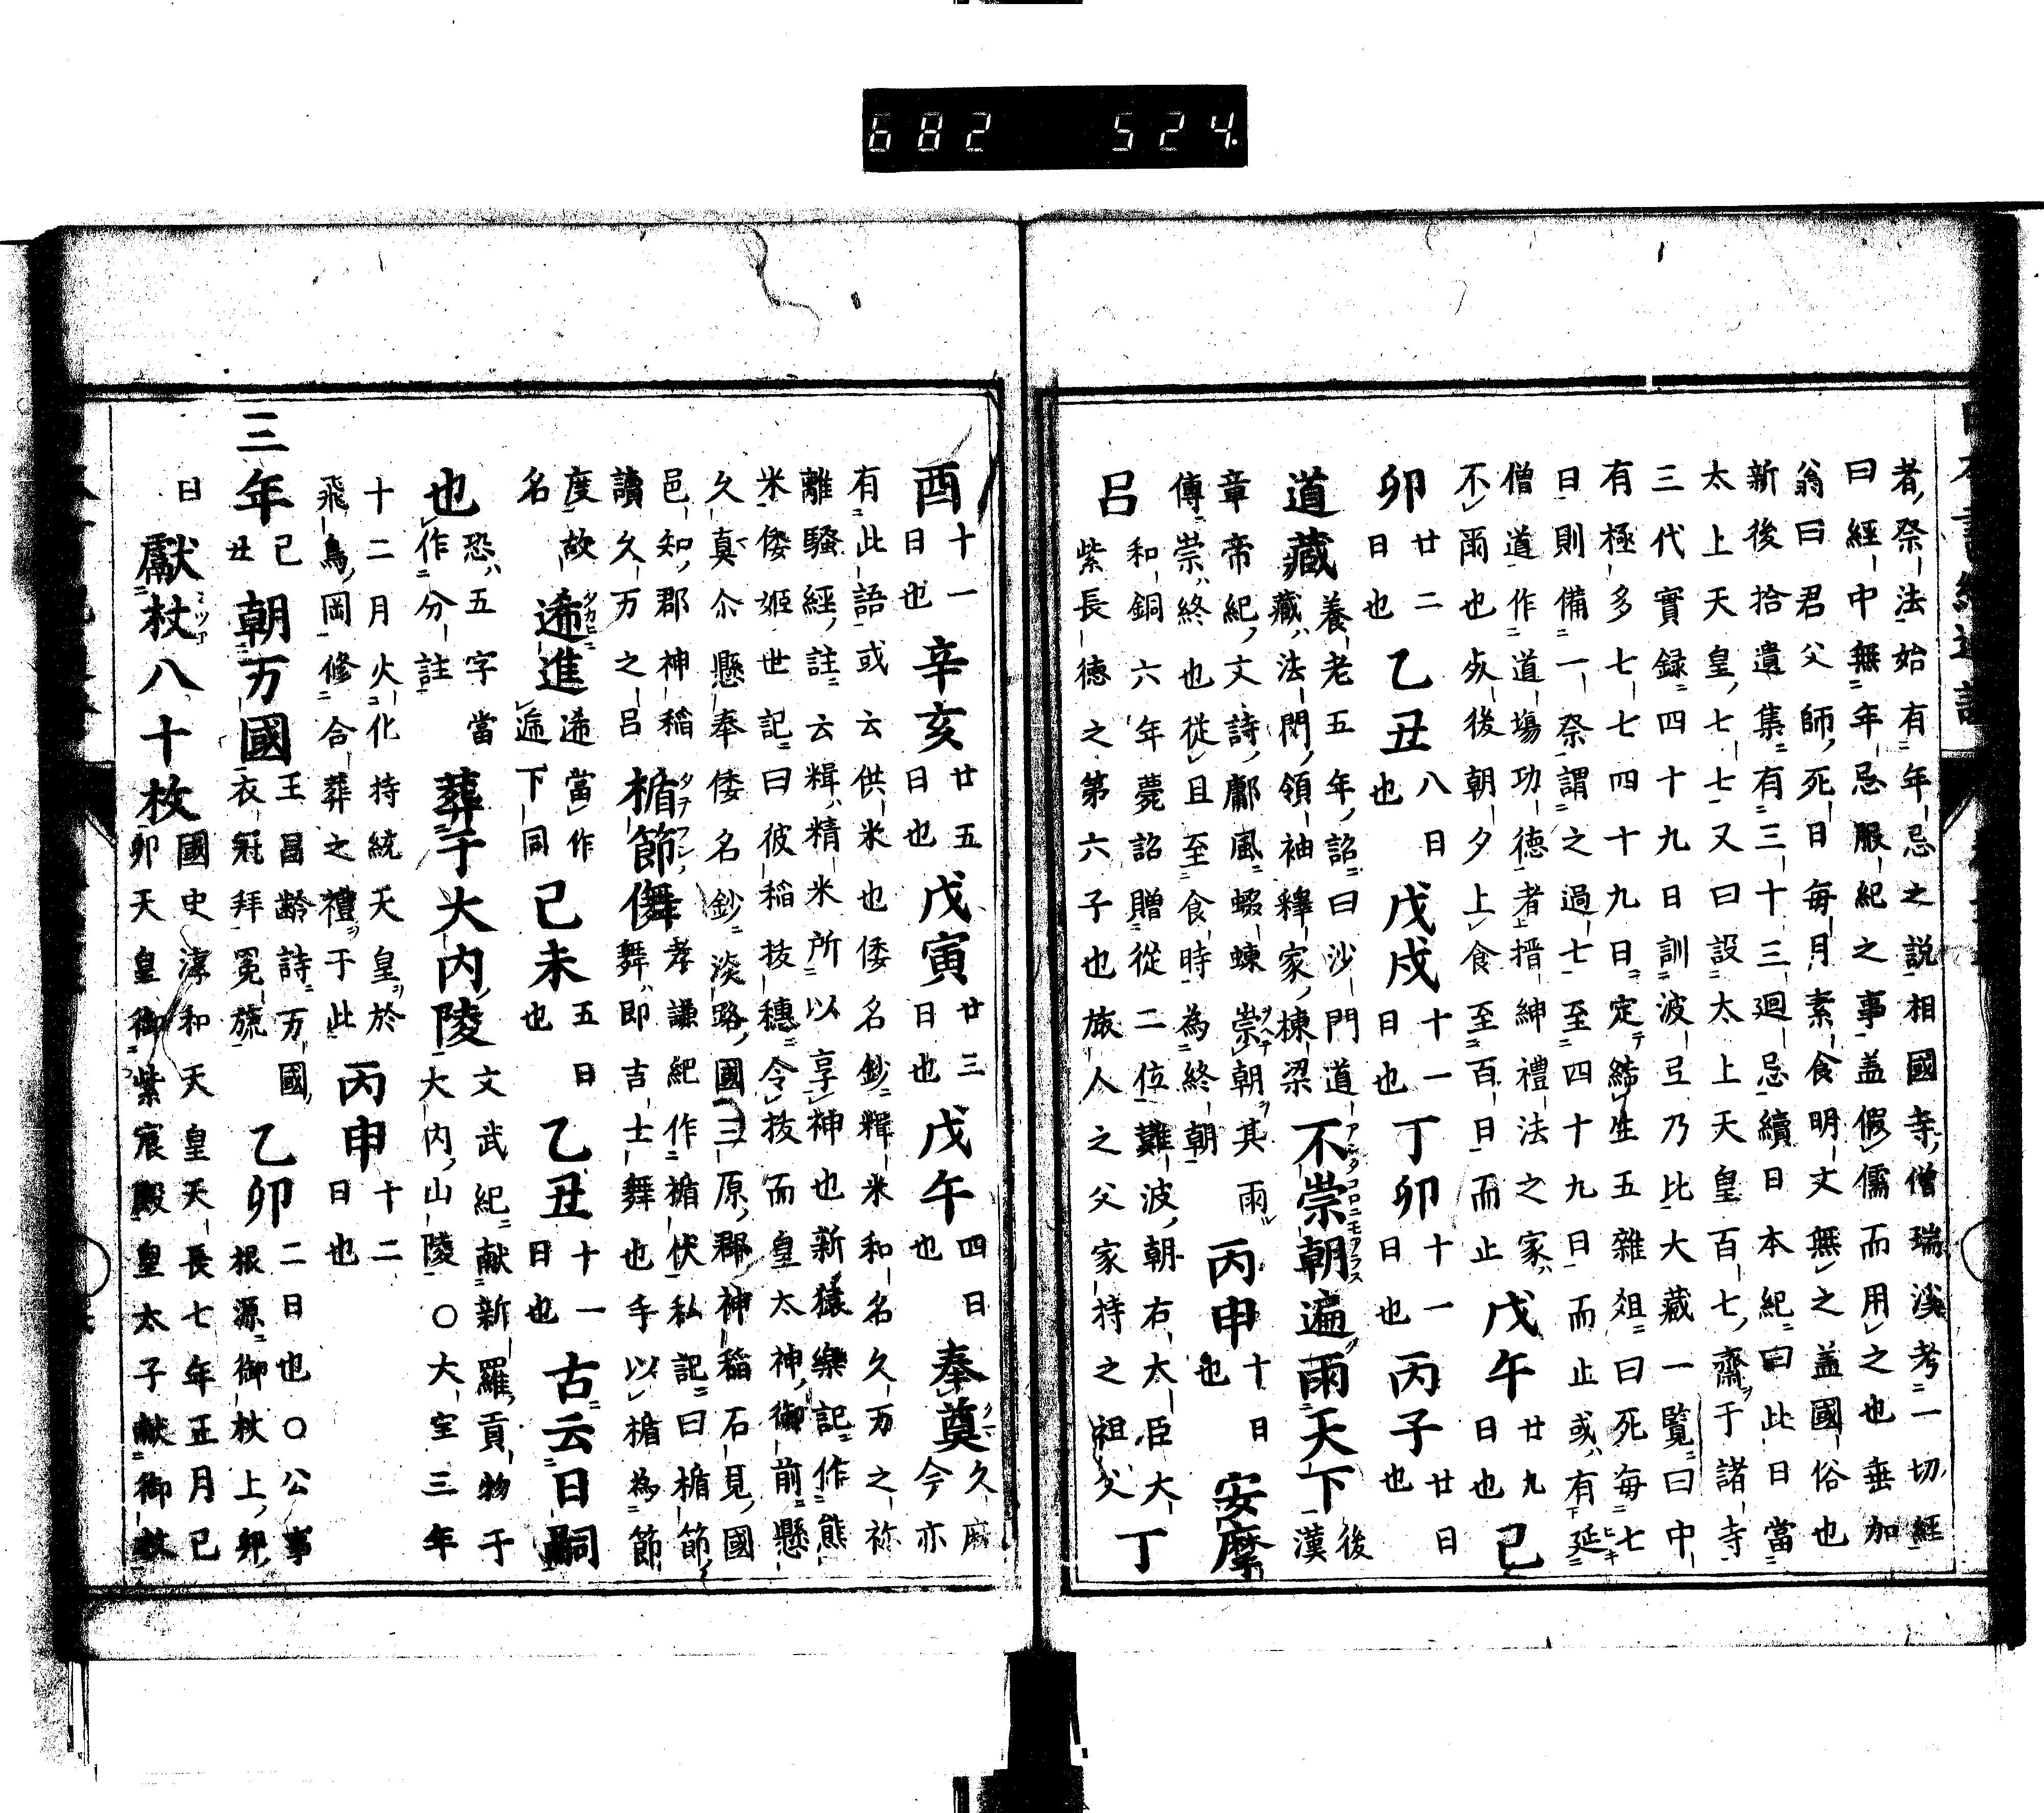 682 524
者祭法始有年忌之説相國寺僧瑞溪考一切經
曰經中無年忌服紀之事盖假儒而用之也垂加
翁曰君父師死日毎月素食明文無之盖國俗也
新後拾遺集有三十三迴忌續日本紀曰此日當
太上天皇七七又曰設太上天皇百七齋于諸寺
三代實録四十九日訓波弖乃比大藏一覧曰中
有極多七七四十九日定結生五雜俎曰死毎七
日則備一祭謂之過七至四十九日而止或有延
僧道作道場功德者搢紳禮法之家
不爾也歿後朝夕上食至百日而止
戊午
廿九
日也
己
卯
廿二
日也
乙丑
八日
也
戊戌
十一
日也
丁卯
十一
日也
丙子
廿日
也
道藏
養老五年詔曰沙門道
藏法門領袖釋家棟梁
不崇朝遍雨天下
後
漢
章帝紀文詩鄘風蝃蝀崇朝其雨
傳崇終也從且至食時為終朝
丙申
十日
也
安摩
呂
和銅六年薨詔贈從二位難波朝右大臣大
紫長德之第六子也旅人之父家持之祖父
丁
酉
十一
日也
辛亥
廿五
日也
戊寅
廿三
日也
戊午
四日
也
奉奠
久麻
今亦
有此語或云供米也倭名鈔糈米和名久万之祢
離騷經註云糈精米所以享神也新猿樂記作熊
米倭姬世記曰彼稲抜穗令抜而皇太神御前懸
久真尒懸奉倭名鈔淡路國三原郡神稲石見國
邑知郡神稲
讀久万之呂
楯節儛
孝謙紀作楯伏私記曰楯節
舞即吉士舞也手以楯為節
度故
名
遞進
遞當作
遞下同
己未
五日
也
乙丑
十一
日也
古云日嗣
也
恐五字當
作分註
葬于大内陵
文武紀献新羅貢物于
大内山陵〇大宝三年
十二月火化持統天皇於
飛鳥岡修合葬之禮于此
丙申
十二
日也
三年
己
丑
朝万國
王昌齡詩万國
衣冠拜冕旒
乙卯
二日也〇公事
根源御杖上卯
日
獻杖八十枚
國史淳和天皇天長七年正月己
卯天皇御紫宸殿皇太子献御杖